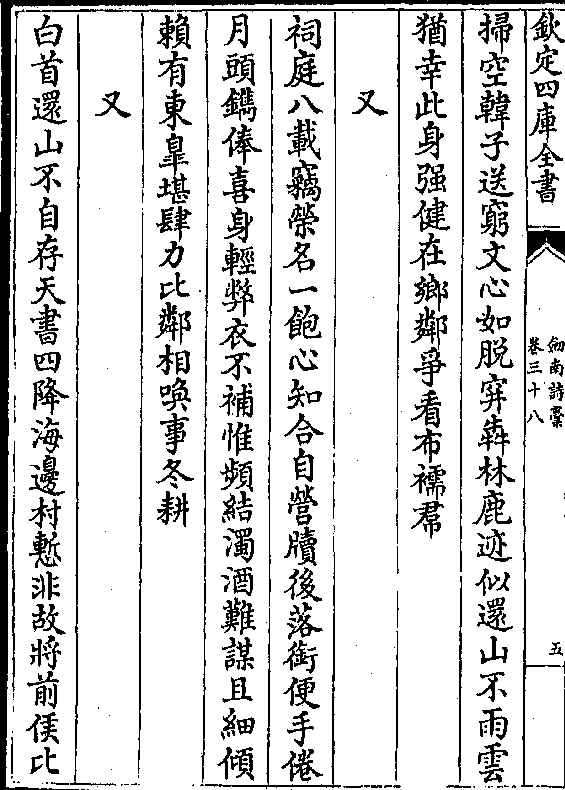 欽定四庫全書
劍南詩藁
卷三十八
五
掃空韓子送窮文心如脱穽犇林鹿迹似還山不雨雲
猶幸此身强健在鄉鄰爭看布襦帬
又
祠庭八載竊榮名一飽心知合自營牘後落銜便手倦
月頭鐫俸喜身輕弊衣不補惟頻結濁酒難謀且細傾
賴有東臯堪肆力比鄰相喚事冬耕
又
白首還山不自存天書四降海邊村慙非故將前侯比